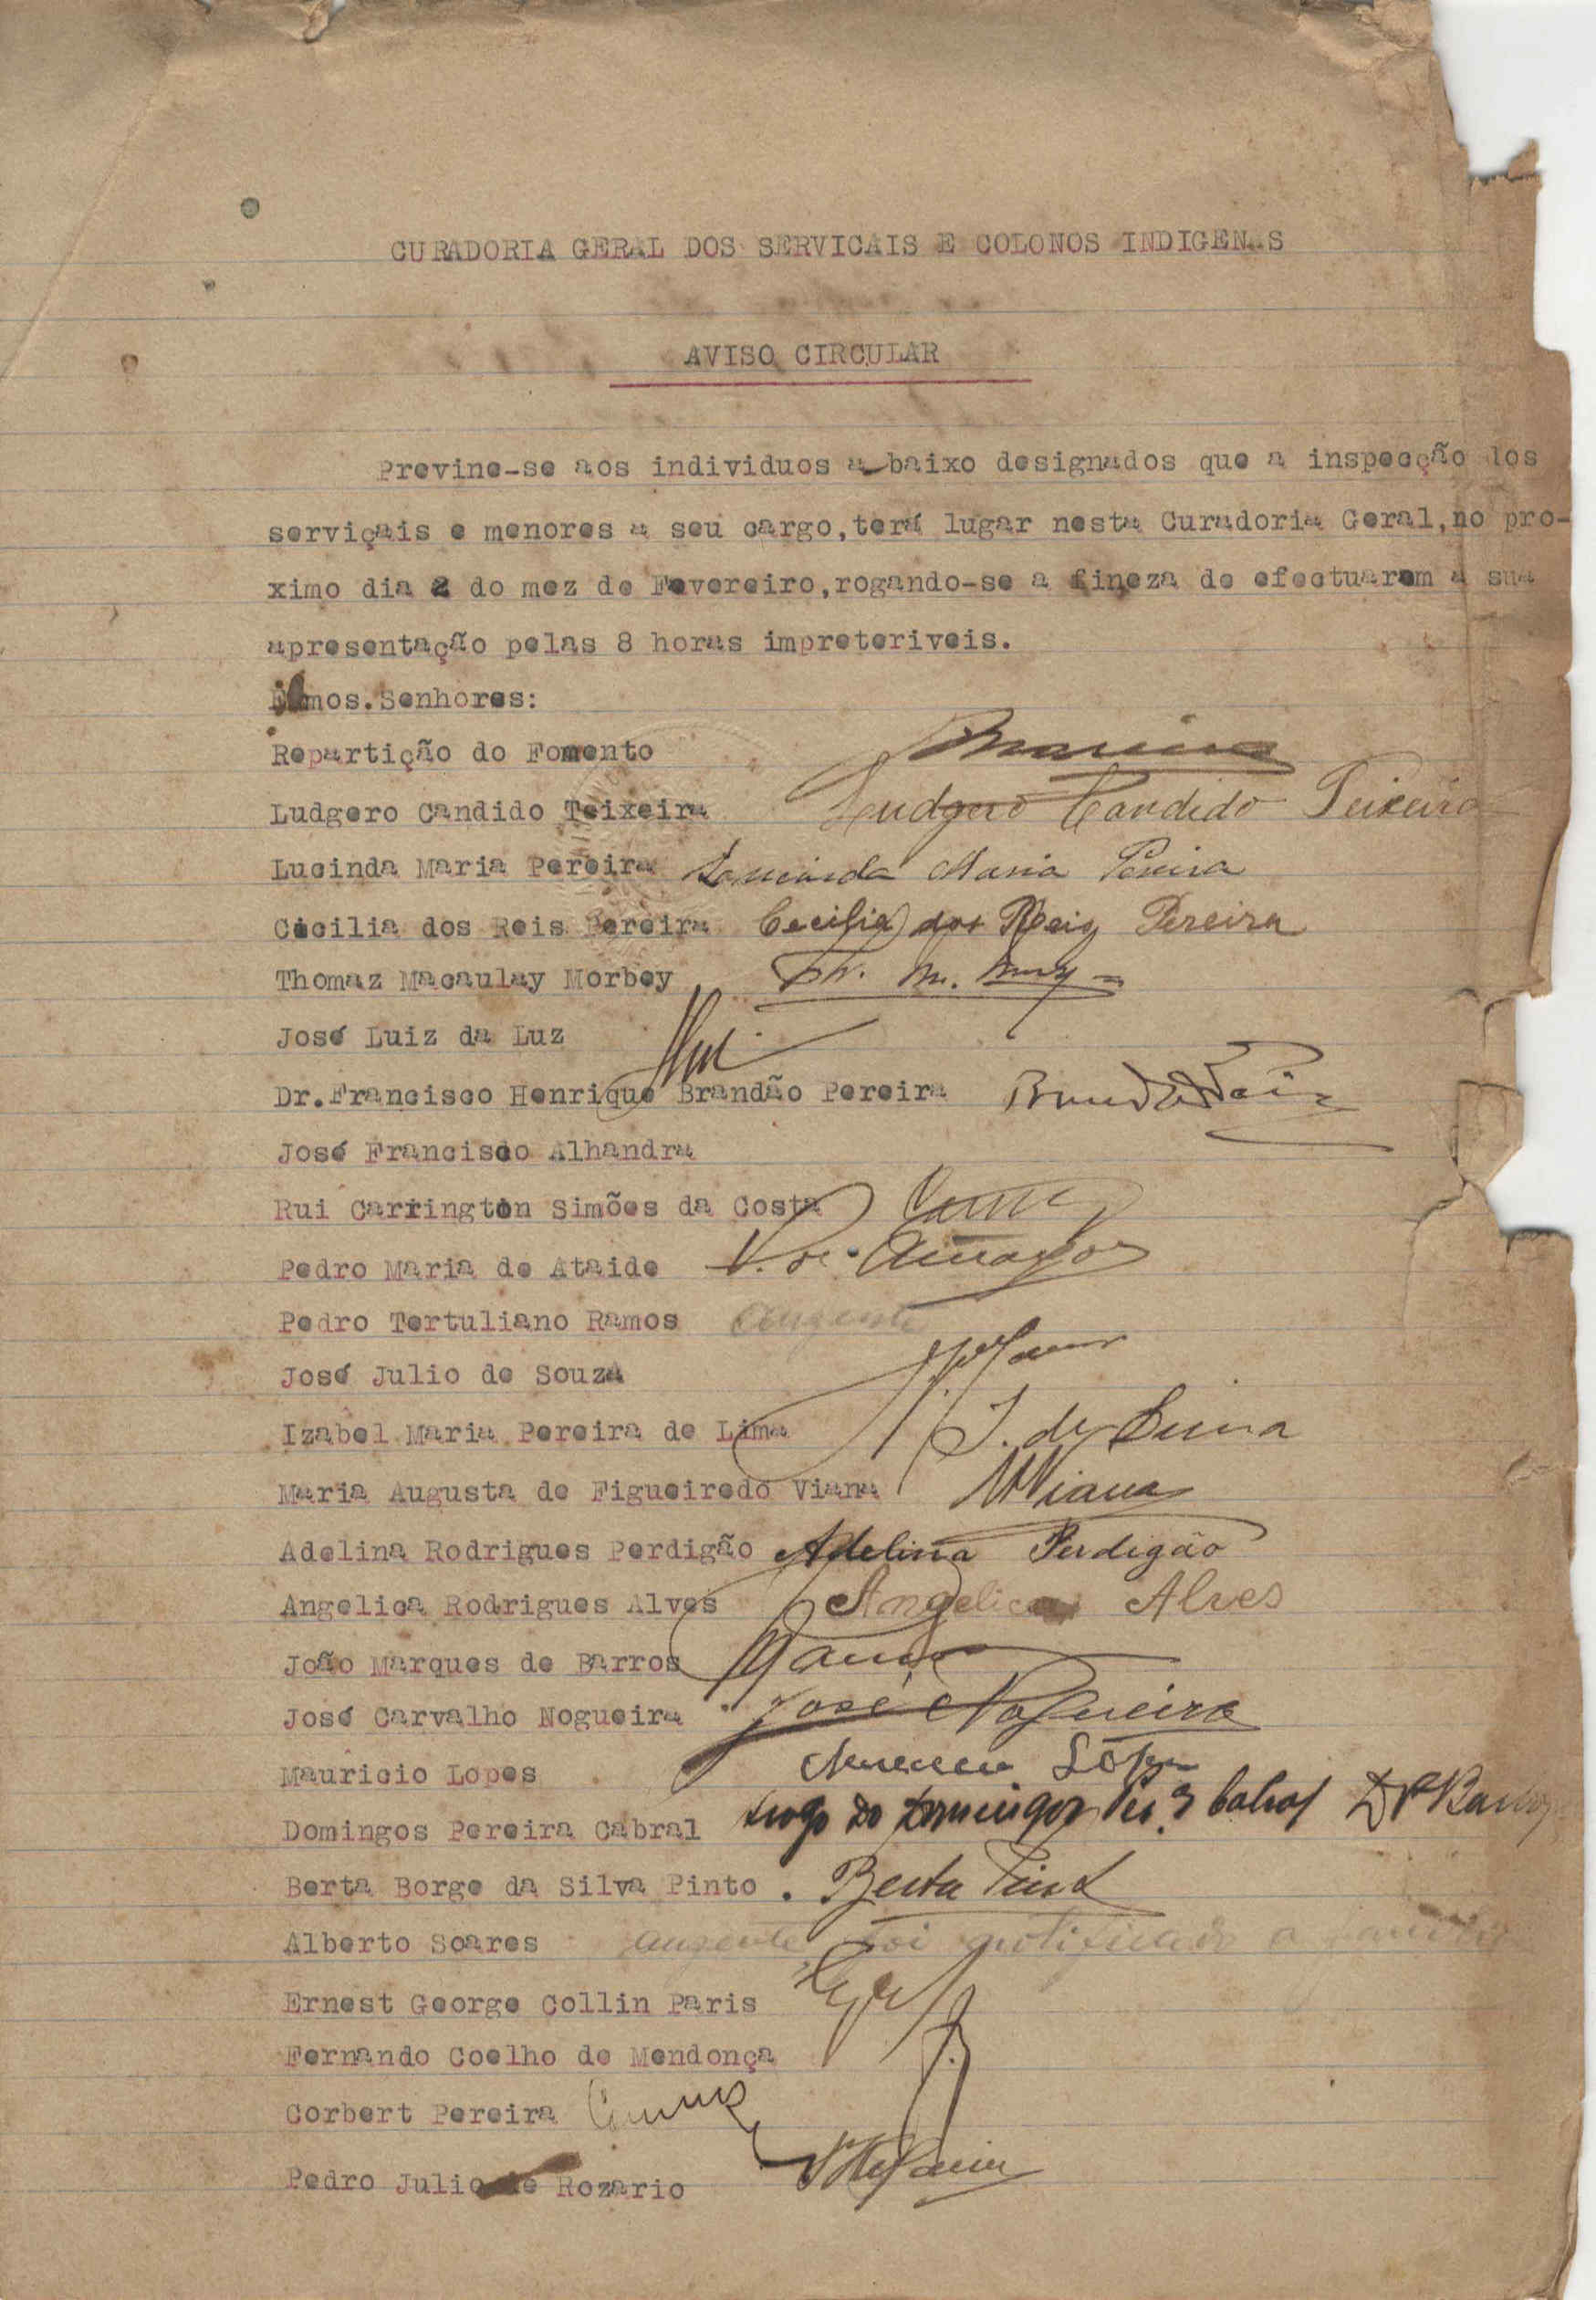 CURADORIA GERAL DOS SERVICAIS E COLONOS INDIGENAS
AVISO CIRCULAR
Previne-se aos individuos a baixo designados que a inspecção dos
serviçais e menores a seu cargo,terá lugar nesta Curadoria Geral,no pro-
ximo dia 2 do mez de Fevereiro,rogando-se a fineza de efectuarem a sua
apresentação pelas 8 horas impreteriveis.
Ilmos.Senhores:
Repartição do Fomento
Ludgero Candido Teixeira Ludgero Candido Teixeira
Lucinda Maria Pereira Lucinda Maria Pereira
Cicilia dos Reis Pereira Cecilia dos Reis Pereira
Thomaz Macaulay Morbey Th. M.
José Luiz da Luz
Dr.Francisco Henrique Brandão Pereira
José Francisco Alhandra
Rui Carrington Simões da Costa
Pedro Maria de Ataide
Pedro Tertuliano Ramos auzente
José Julio de Souza
Izabel Maria Pereira de Lima I. de Lima
Maria Augusta de Figueiredo Viana MViana
Adelina Rodrigues Perdigão Adelina Perdigão
Angelica Rodrigues Alves Angelica Alves
João Marques de Barros
José Carvalho Nogueira José Nogueira
Mauricio Lopes Lopes
Domingos Pereira Cabral
Berta Borge da Silva Pinto . Berta Pinto
Alberto Soares auzente foi notificado a familia
Ernest George Collin Paris
Fernando Coelho de Mendonça
Corbert Pereira
Pedro Julio de Rozario